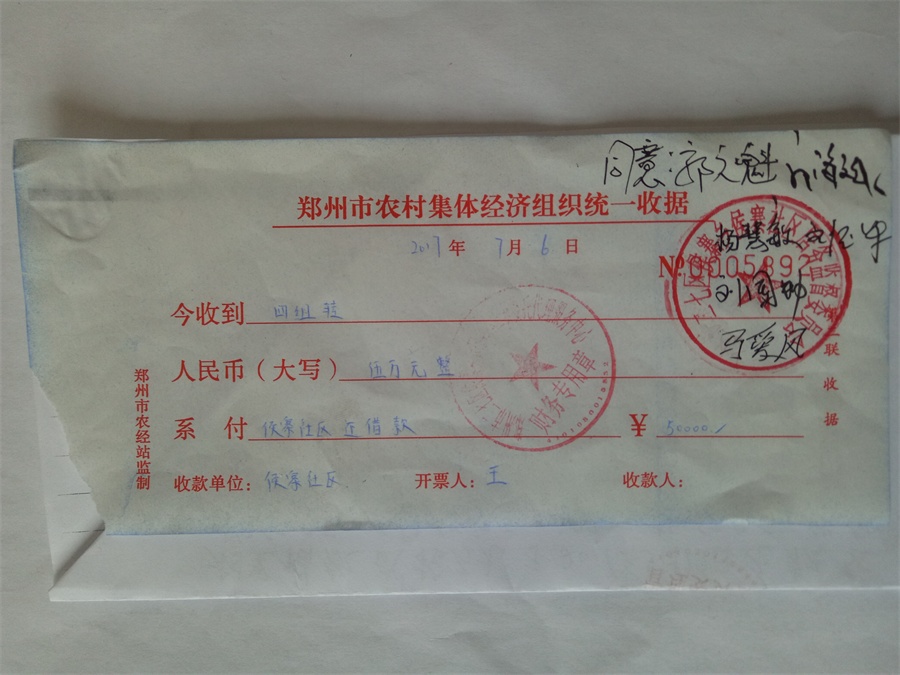 同意 郭文魁
郑州市农村集体经济组织统一收据
2017年 7月 6日
杨慧敏
No 000589
今收到 四组 转
刘国
马爱凤
人民币（大写） 伍万元整
财务专用章
系 付 侯寨社区 还借款 ¥ 50000/
收款单位： 侯寨社区 开票人： 王 收款人：
郑州市农经站监制
联 收据